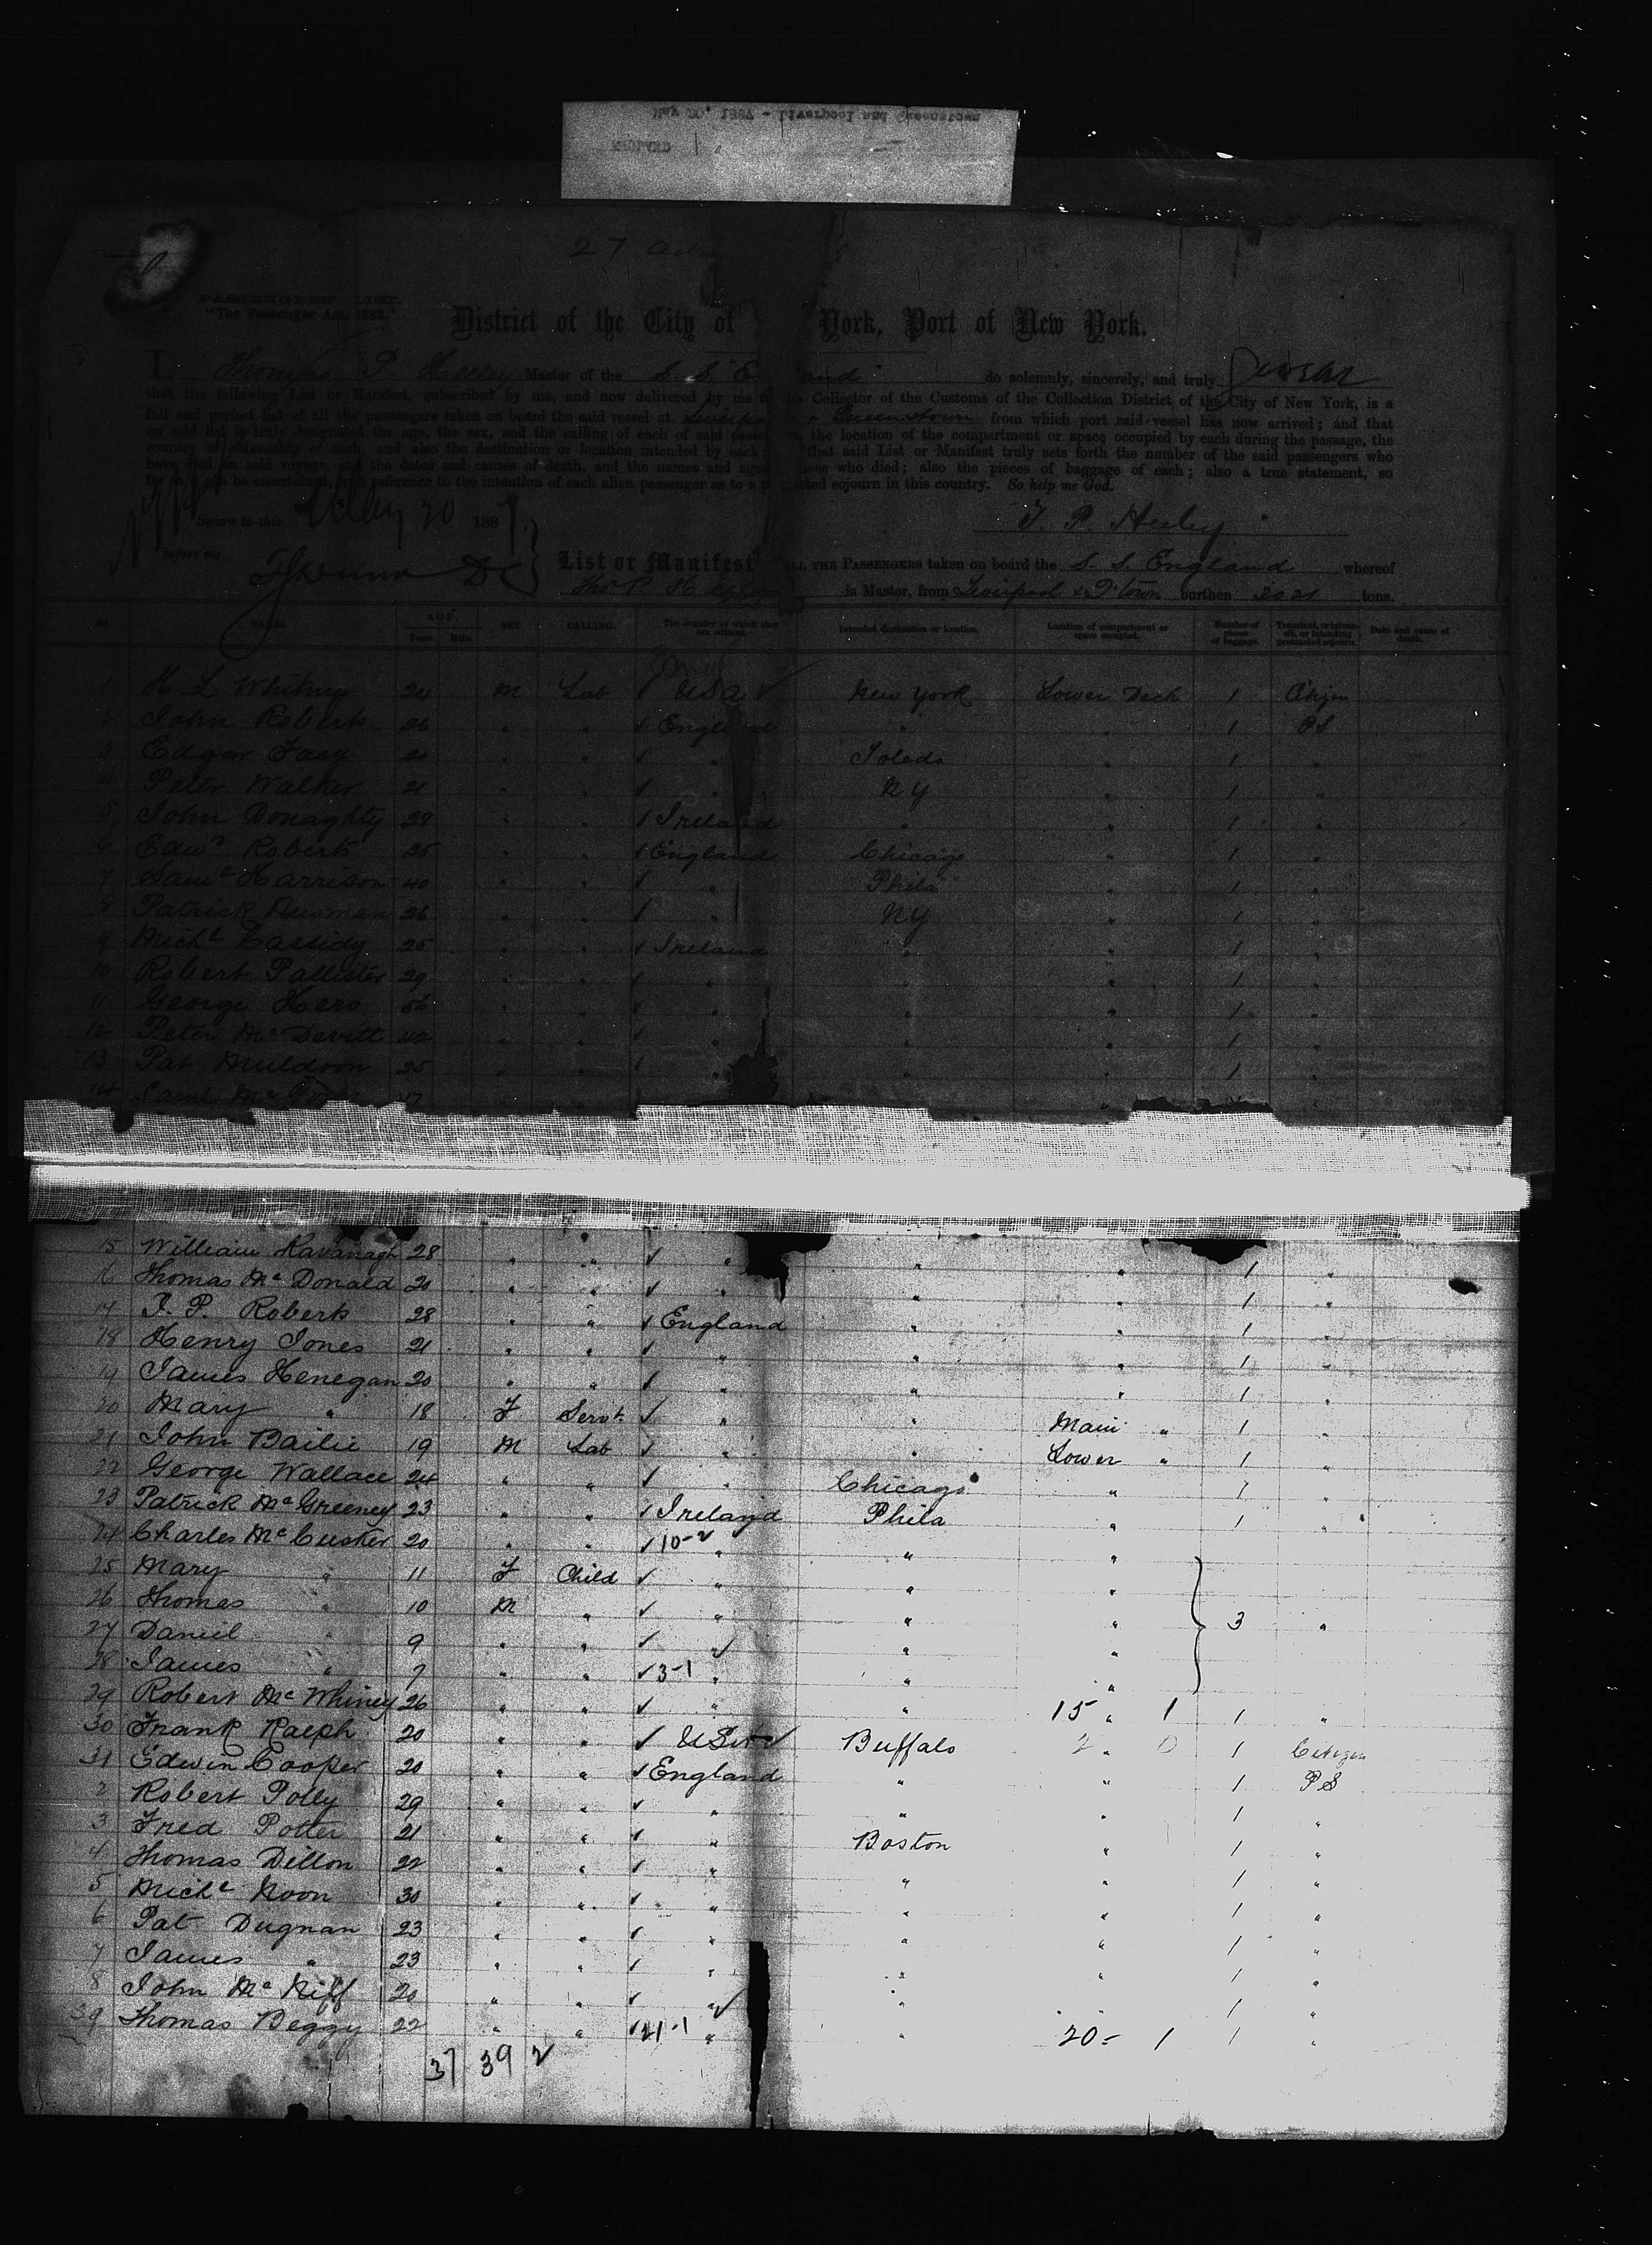 May 20, 1887 - Liverpool and Queenstown
ENGLAND
27
PASSENGERS' LIST.
"The Passenger Act, 1882."
District of the City of York, Port of New York.
I, Thomas P. Heeley Master of the S. S. England do solemnly, sincerely, and truly swear
that the following List or Manifest, subscribed by me, and now delivered by me to the Collector of the Customs of the Collection District of the City of New York, is a
full and perfect list of all the passengers taken on board the said vessel at Liverpool & Queenstown from which port said vessel has now arrived; and that
on said list is truly designated the age, the sex, and the calling of each of said passengers, the location of the compartment or space occupied by each during the passage, the
country of citizenship of each, and also the destination or location intended by each; that said List or Manifest truly sets forth the number of the said passengers who
have died on said voyage, and the dates and causes of death, and the names and ages those who died; also the pieces of baggage of each; also a true statement, so
far as can be ascertained, with reference to the intention of each alien passenger as to a protracted sojourn in this country. So help me God.
Sworn to this May 20 1887
T. P. Heeley
before me
List or Manifest ALL THE PASSENGERS taken on board the S. S. England whereof
Thos P. Heeley is Master, from Liverpool & Q'town burthen tons.
No. NAMES. AGE Years Mths SEX CALLING. The country of which they are citizens. Intended destination or location. Location of compartment or space occupied. Number of pieces of baggage. Transient, or in transit, or intending protracted sojourn. Date and cause of death.
1 H. L. Whitney 24 M Lab USA New York Lower Deck 1 Citizen
2 John Roberts 26 " " England " " 1 PS
3 Edgar 20 " " " Toledo " 1 "
4 Peter Walker 21 " " " NY " 1 "
5 John Donaghty 28 " " Ireland " " 1 "
6 Edwd Roberts 25 " " England Chicago " 1 "
7 Saml Harrison 40 " " " Phila " 1 "
8 Patrick Newman 26 " " " NY " 1 "
9 Michl Cassidy 25 " " Ireland " " 1 "
10 Robert Pallister 29 " " " " " 1 "
11 George Hero 56 " " " " " 1 "
12 Peter McDevitt 42 " " " " " 1 "
13 Pat Muldoon 25 " " " " " 1 "
14 17
15 William Kavanagh 28 " " " " " 1 "
16 Thomas McDonald 20 " " " " " 1 "
17 J. P. Roberts 28 " " England " " 1 "
18 Henry Jones 21 " " " " " 1 "
19 James Henegan 20 " " " " " 1 "
20 Mary " 18 F Servt " " Main " 1 "
21 John Bailie 19 M Lab " " Lower " 1 "
22 George Wallace 24 " " " Chicago " 1 "
23 Patrick McGreeney 23 " " Ireland Phila " 1 "
24 Charles McCusker 20 " " 10-2 " " "
25 Mary " 11 F Child " " "
26 Thomas " 10 M " " " " 3 "
27 Daniel " 9 " " " " "
28 James " 7 " " 3-1 " " "
29 Robert McWhiney 26 " " " " 15 " 1 1 "
30 Frank Ralph 20 " " USA Buffalo 2 " 0 1 Citizen
31 Edwin Cooper 20 " " England " " 1 PS
2 Robert Polly 29 " " " " " 1 "
3 Fred Potter 21 " " " Boston " 1 "
4 Thomas Dillon 22 " " " " " 1 "
5 Michl Noon 30 " " " " " 1 "
6 Pat Dugnan 23 " " " " " 1 "
7 James " 23 " " " " " 1 "
8 John McNiff 20 " " " " " 1 "
39 Thomas Beggy 22 " " 21-1 " " 20- 1 1 "
37 39 2